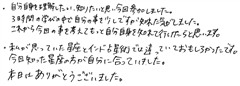 ・自分自身を理解したい、知りたいと思い今回参加しました。
3時間の学びの中で自分の事が少しですが知れた気がしました。
これから今日の事を考えてもっと自分自身を知れて行けたらと思います。
・私が思っていた星座とインド占星術では違っていておもしろかったです。
今日知った星座の方が自分に合っていました。
本日はありがとうございました。